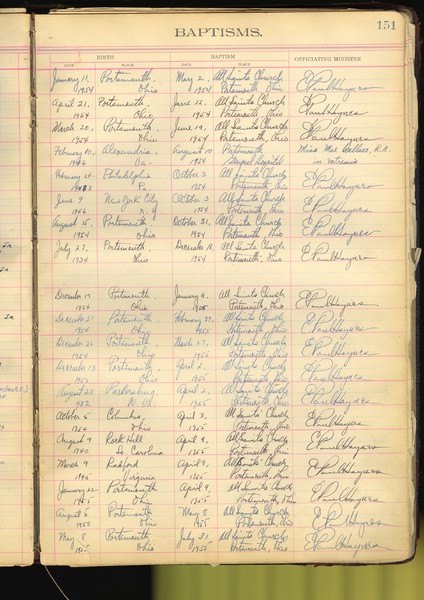 BAPTISMS.
151
BIRTH
BAPTISM
OFFICIATING MINISTER
DATE PLACE DATE PLACE
January 11, Portsmouth, May 2, All Saints Church E Paul Haynes
1954 Ohio 1954 Portsmouth, Ohio
April 21, Portsmouth, June 12, All Saints Church E Paul Haynes
1954 Ohio 1954 Portsmouth, Ohio
March 20, Portsmouth, June 19, All Saints Church E Paul Haynes
1954 Ohio 1954 Portsmouth, Ohio
February 10, Alexandria, August Portsmouth Miss Mae Wallace, R.N.
1946 Va. 1954 Hospital in extremis
February Philadelphia October 3 All Saints Church E Paul Haynes
Pa 1954 Portsmouth, Ohio
June 9 New York City October 3 All Saints Church E Paul Haynes
1954 Portsmouth, Ohio
August 15, Portsmouth October 31, All Saints Church E Paul Haynes
1954 Ohio 1954 Portsmouth, Ohio
July 27, Portsmouth, December 18, All Saints Church E Paul Haynes
1934 Ohio 1954 Portsmouth, Ohio
December 19 Portsmouth, January 9, All Saints Church E Paul Haynes
1954 Ohio 1955 Portsmouth, Ohio
December Portsmouth February All Saints Church E Paul Haynes
1954 Ohio 1955 Portsmouth, Ohio
December 26 Portsmouth, March 27, All Saints Church E Paul Haynes
1954 Ohio 1955 Portsmouth, Ohio
December 13 Portsmouth, April 2, All Saints Church E Paul Haynes
Ohio 1955 Portsmouth, Ohio
August Parkersburg April 2, All Saints Church E Paul Haynes
W. Va 1955 Portsmouth, Ohio
October 5 Columbus, April 3, All Saints' Church E Paul Haynes
1954 Ohio 1955 Portsmouth, Ohio
August 9 Rock Hill April 9, All Saints Church E Paul Haynes
1940 So Carolina 1955 Portsmouth, Ohio
March 9 Radford April 9, All Saints Church E Paul Haynes
Virginia 1955 Portsmouth, Ohio
January 22, Portsmouth April 9, All Saints Church E Paul Haynes
Ohio 1955 Portsmouth, Ohio
August 5 Portsmouth May 8 All Saints Church E Paul Haynes
1950 Ohio 1955 Portsmouth, Ohio
May 8 Portsmouth, July 31, All Saints Church E Paul Haynes
1955 Ohio 1955 Portsmouth, Ohio